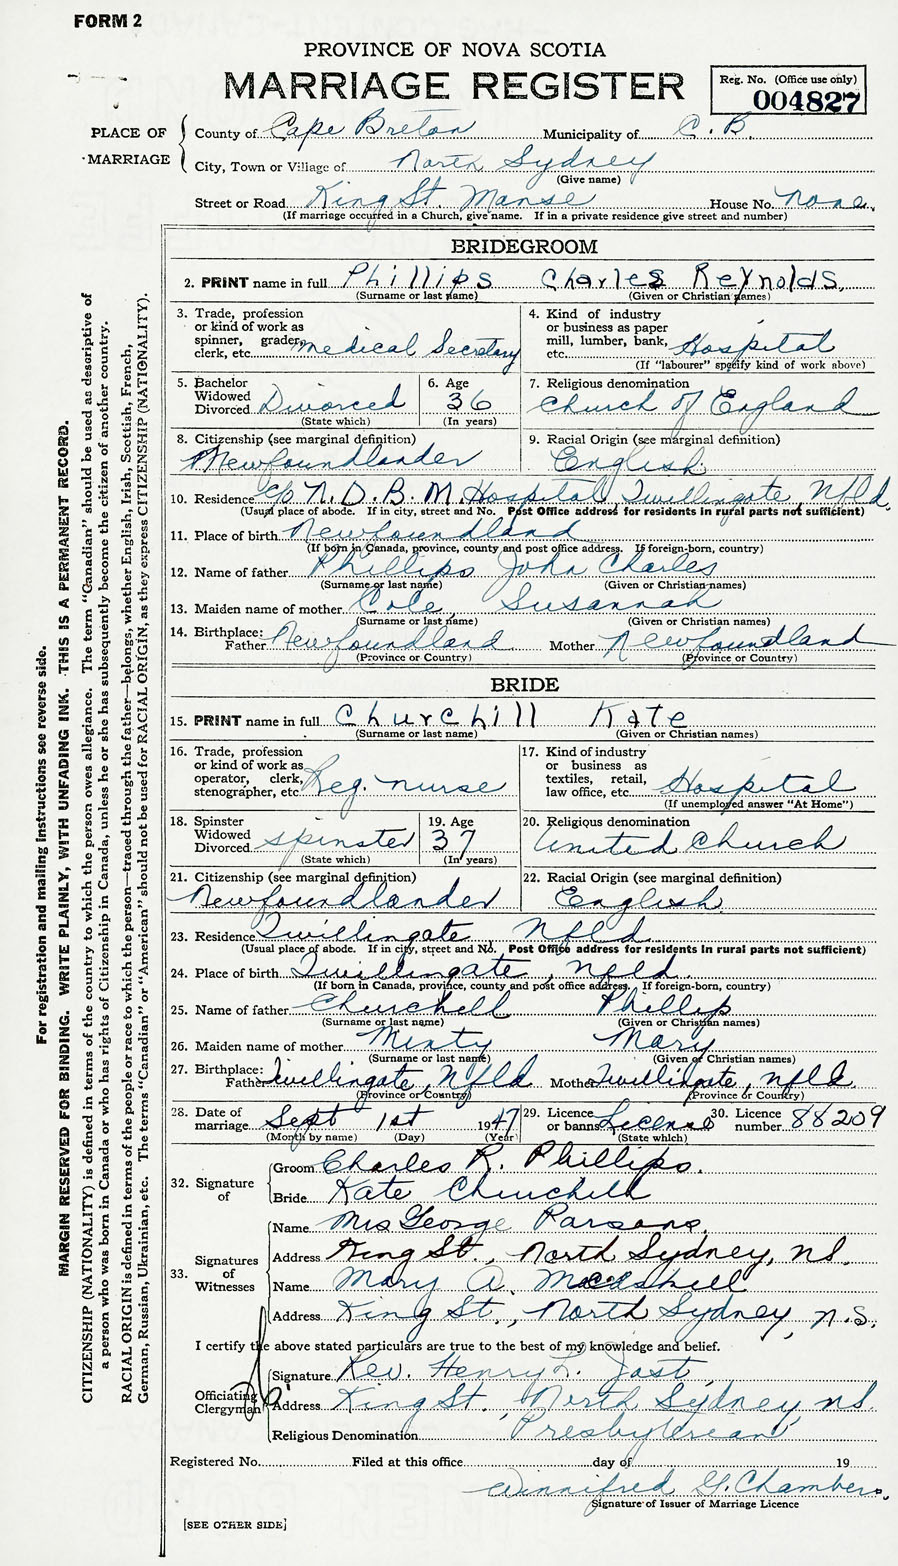 FORM 2
PROVINCE OF NOVA SCOTIA
MARRIAGE REGISTER
Reg. No. (Office use only)
004827
PLACE OF MARRIAGE
County of Cape Breton Municipality of C. B.
City, Town or Village of North Sydney
(Give name)
Street or Road King St. Manse House No. none
(If marriage occurred in a Church, give name. If in a private residence give street and number)
BRIDEGROOM
2. PRINT name in full Phillips Charles Reynolds.
(Surname or last name) (Given or Christian names)
3. Trade, profession or kind of work as spinner, grader, clerk, etc. Medical Secretary
4. Kind of industry or business as paper mill, lumber, bank, etc. Hospital
(If "labourer" specify kind of work above)
5. Bachelor Widowed Divorced Divorced
(State which)
6. Age 36
(In years)
7. Religious denomination Church of England
8. Citizenship (see marginal definition) Newfoundlander
9. Racial Origin (see marginal definition) English
10. Residence c/o N. D. B. M. Hospital, Twillingate, Nfld.
(Usual place of abode. If in city, street and No. Post Office address for residents in rural parts not sufficient)
11. Place of birth Newfoundland
(If born in Canada, province, county and post office address. If foreign-born, country)
12. Name of father Phillips John Charles
(Surname or last name) (Given or Christian names)
13. Maiden name of mother Cole, Susannah
(Surname or last name) (Given or Christian names)
14. Birthplace: Father Newfoundland Mother Newfoundland
(Province or Country) (Province or Country)
BRIDE
15. PRINT name in full Churchill Kate
(Surname or last name) (Given or Christian names)
16. Trade, profession or kind of work as operator, clerk, stenographer, etc. Reg. nurse
17. Kind of industry or business as textiles, retail, law office, etc. Hospital
(If unemployed answer "At Home")
18. Spinster Widowed Divorced spinster
(State which)
19. Age 37
(In years)
20. Religious denomination United Church
21. Citizenship (see marginal definition) Newfoundlander
22. Racial Origin (see marginal definition) English
23. Residence Twillingate Nfld
(Usual place of abode. If in city, street and No. Post Office address for residents in rural parts not sufficient)
24. Place of birth Twillingate, Nfld.
(If born in Canada, province, county and post office address. If foreign-born, country)
25. Name of father Churchill Phillip
(Surname or last name) (Given or Christian names)
26. Maiden name of mother Minty Mary
(Surname or last name) (Given or Christian names)
27. Birthplace: Father Twillingate, Nfld Mother Twillingate, nfld
(Province or Country) (Province or Country)
28. Date of marriage Sept 1st 1947
(Month by name) (Day) (Year)
29. Licence or banns License
(State which)
30. Licence number 88209
32. Signature of
Groom Charles R. Phillips.
Bride Kate Churchill
33. Signatures of Witnesses
Name Mrs George Parsons.
Address King St., North Sydney, ns.
Name Mary A.
Address King St., North Sydney, n.s.
I certify the above stated particulars are true to the best of my knowledge and belief.
Officiating Clergyman
Signature Rev. Henry L. Jost
Address King St. North Sydney, ns.
Religious Denomination Presbyterian
Registered No. Filed at this office day of 19
Winnifred G. Chambers.
Signature of Issuer of Marriage Licence
[SEE OTHER SIDE]
For registration and mailing instructions see reverse side.
MARGIN RESERVED FOR BINDING. WRITE PLAINLY, WITH UNFADING INK. THIS IS A PERMANENT RECORD.
CITIZENSHIP (NATIONALITY) is defined in terms of the country to which the person owes allegiance. The term "Canadian" should be used as descriptive of
a person who was born in Canada or who has rights of Citizenship in Canada, unless he or she has subsequently become the citizen of another country.
RACIAL ORIGIN is defined in terms of the people or race to which the person—traced through the father—belongs, whether English, Irish, Scottish, French,
German, Russian, Ukrainian, etc. The terms "Canadian" or "American" should not be used for RACIAL ORIGIN, as they express CITIZENSHIP (NATIONALITY).